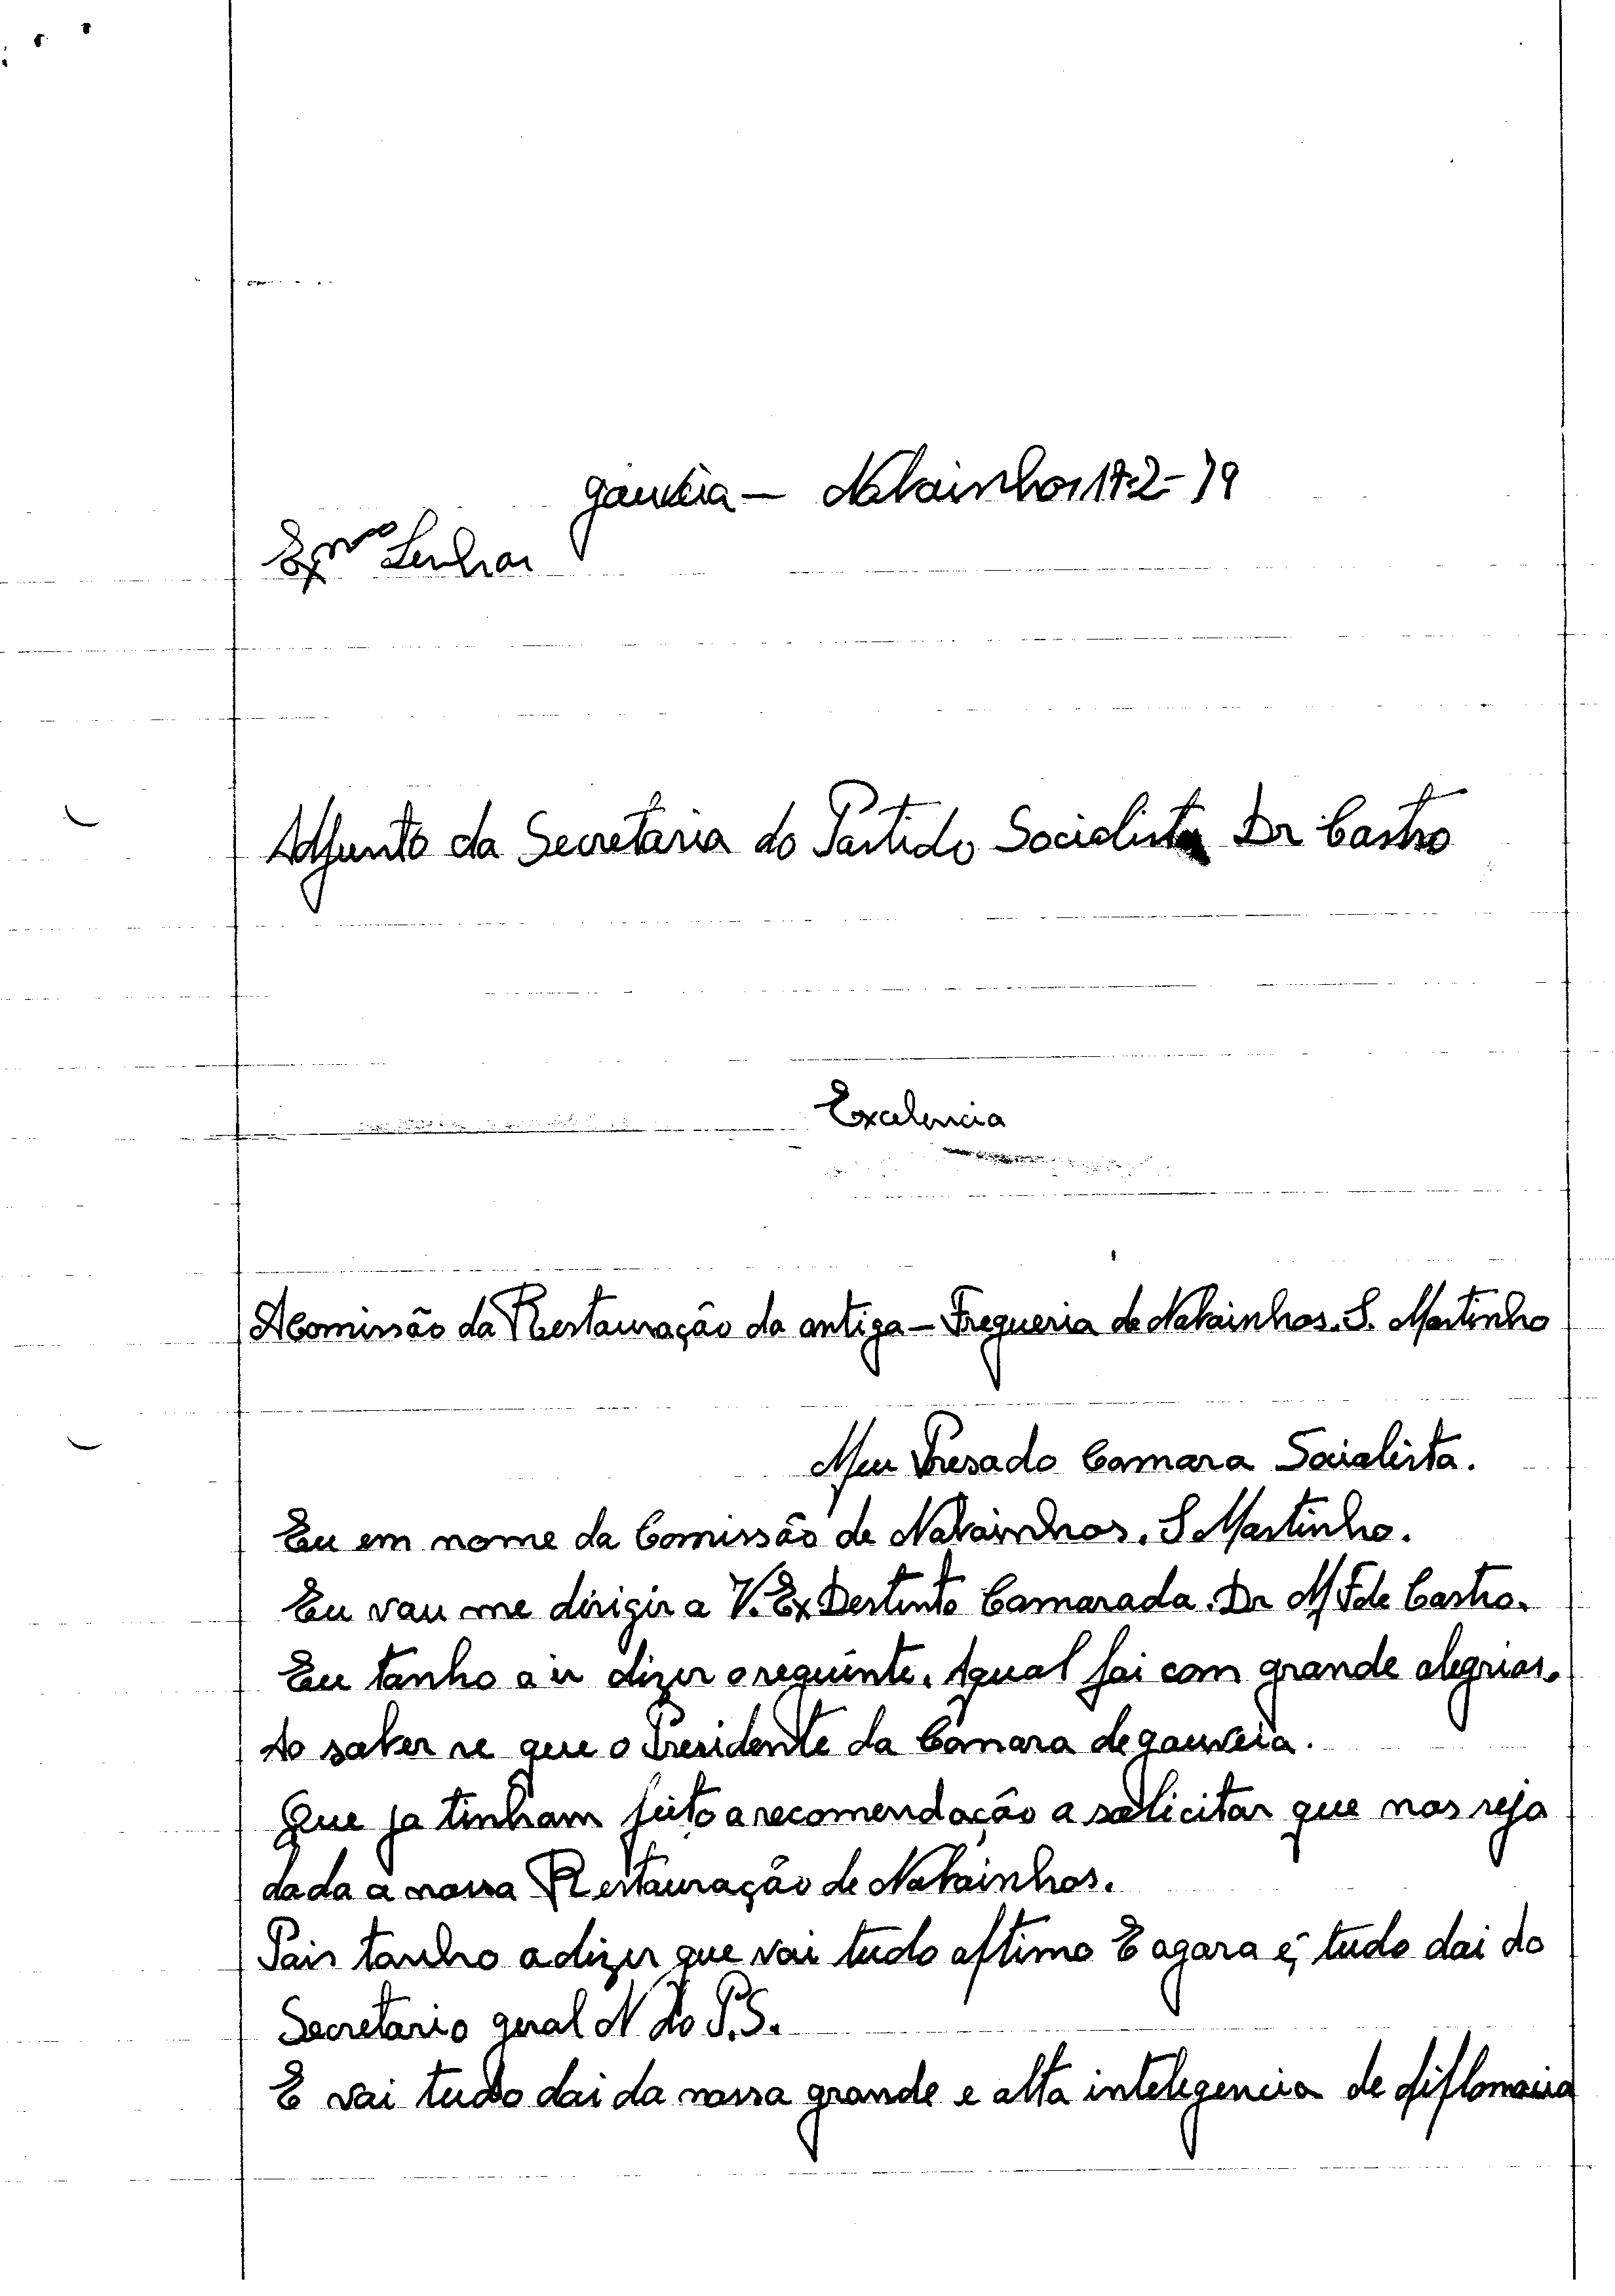 Gouveia — Nabainhos 17-2-79
Exmo Senhor
Adjunto da Secretaria do Partido Socialista Dr Castro
Excelencia
A Comissão da Restauração da antiga — Freguesia de Nabainhos. S. Martinho
Meu Presado Camara Socialista.
Eu em nome da Comissão de Nabainhos. S Martinho.
Eu vou me dirigir a V. Ex Destinto Camarada. Dr M F de Castro.
Eu tanho a ir dizer o seguinte. Aqual foi com grande alegrias.
Ao saber se que o Presidente da Câmara de gouveia.
Que ja tinham feito a recomendação a solicitar que nos seja
dada a nossa Restauração de Nabainhos.
Pois tanho a dizer que vai tudo oftimo E agora é tudo dai do
Secretario geral N do P.S.
E vai tudo dai da nossa grande e alta intelegencia de diflomacia